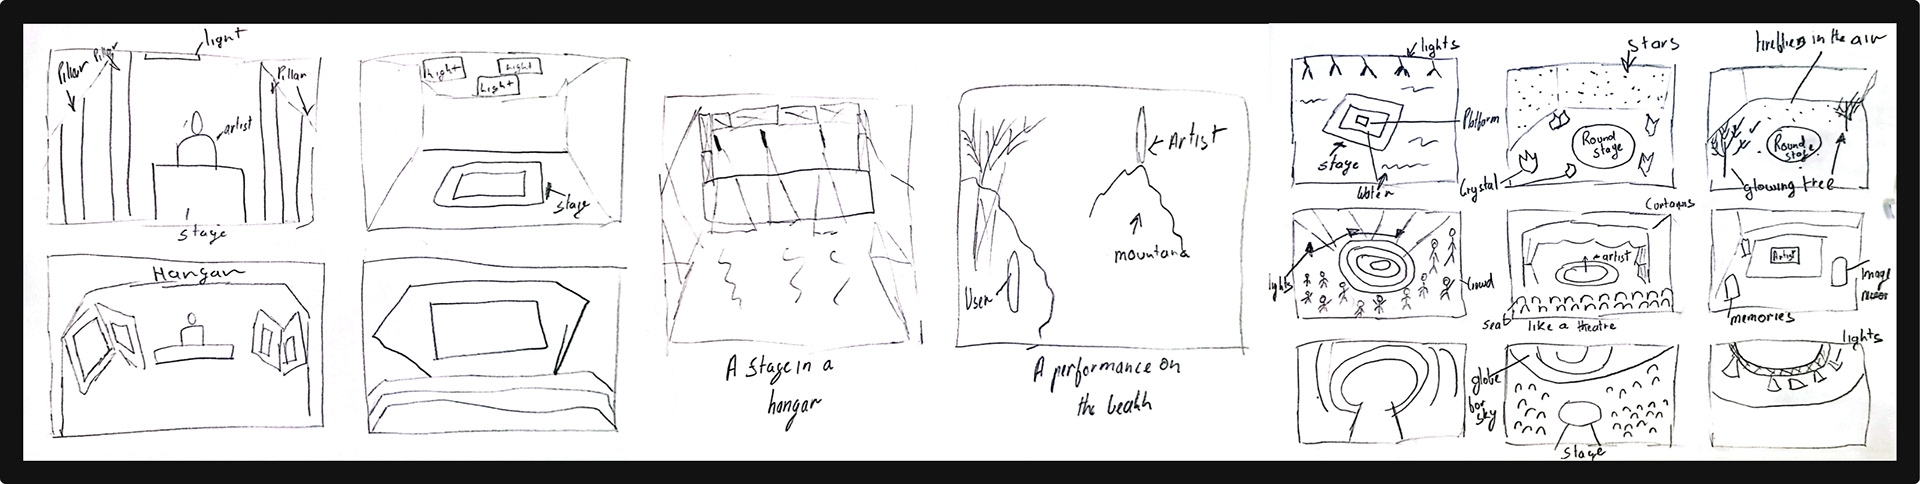 light
Pillar
Pillar
Pillar
artist
stage
light
light
Light
stage
Hangar
A stage in a
hangar
Artist
mountana
User
A performance on
the beahh
lights
Platform
stage
Water
stars
Round
stage
Crystal
fireflies in the air
Round
stage
glowing tree
lights
Crowd
Curtains
artist
seat
like a theatre
Artist
Image
memories
globe
for
sky
stage
lights